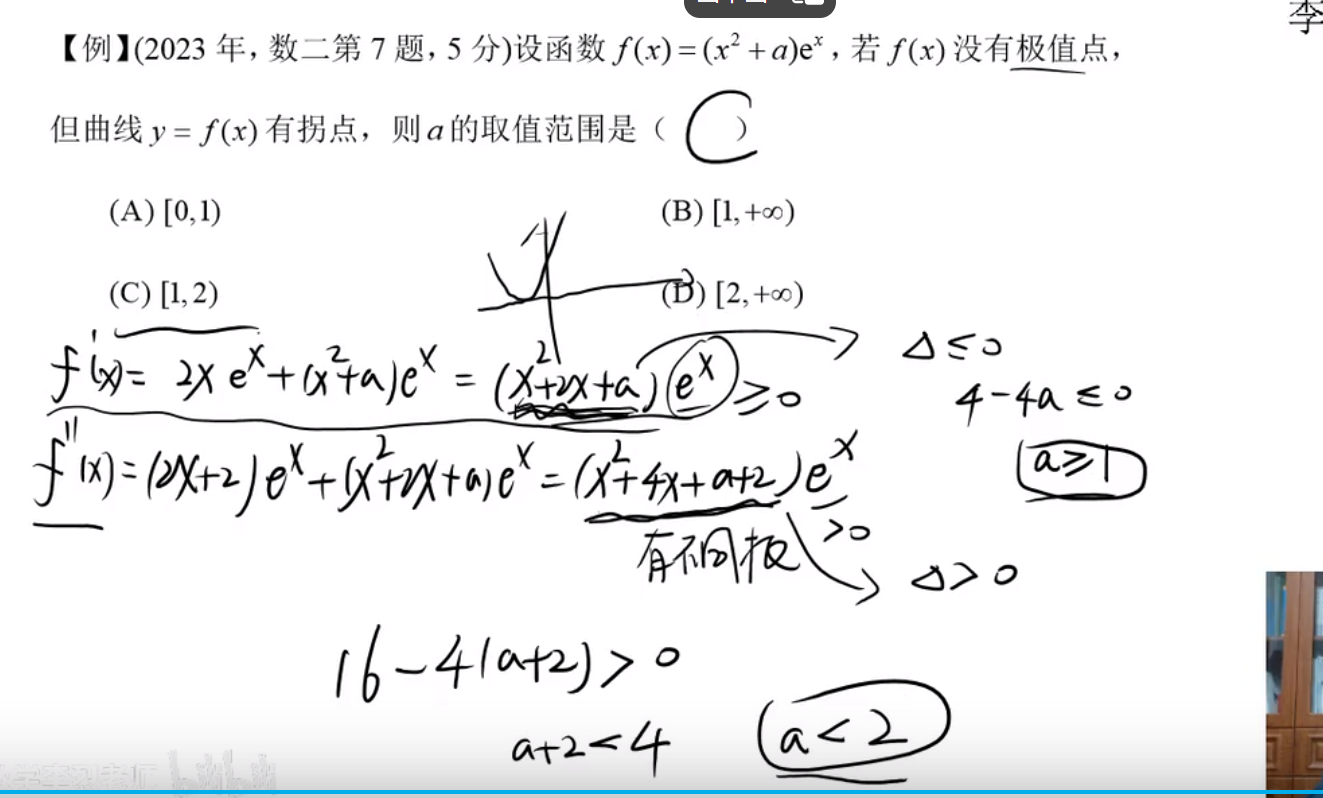 李
【例】(2023 年，数二第 7 题，5 分)设函数 f(x)=(x²+a)eˣ，若 f(x) 没有极值点，
但曲线 y = f(x) 有拐点，则 a 的取值范围是（ C ）
(A) [0,1)
(B) [1,+∞)
(C) [1,2)
(D) [2,+∞)
f'(x)= 2x eˣ+(x²+a)eˣ = (x²+2x+a)eˣ ≥0
Δ≤0
4-4a ≤0
a≥1
f''(x)=(2x+2)eˣ+(x²+2x+a)eˣ=(x²+4x+a+2)eˣ
>0
有不同根
Δ>0
16-4(a+2)>0
a+2<4
a<2